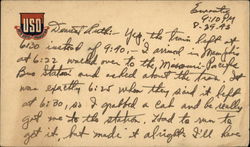 USO
Evening
9:10 PM
8-29-43
Dearest Ruth:- Yep, the train left at
6:30 instead of 9:40. I arrived in Memphis
at 6:22 walked over to the Missouri Pacific
Bus Station and asked about the train. It
was exactly 6:25 when they said it left
at 6:30, so I grabbed a cab and he really
got me to the station. Had to run to
get it, but made it alright. I'll have